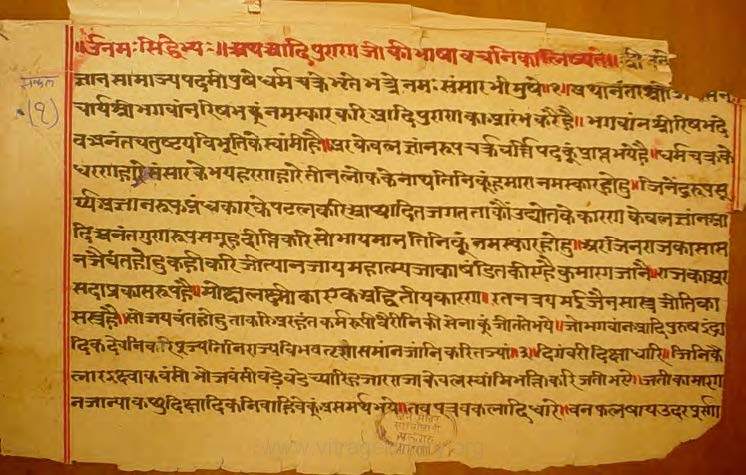 ॥र्उनमः सिद्धेभ्यः॥ अथ आदिपुराण जी की भाषा वचनिका लिष्यते॥ श्री मते
ज्ञान सामाज्य पदमी युषे धर्म चक्रे भर्ते नमः संसार भी मुषे॥१॥
सकल
(१)
चार्य श्री भगवांन रिषभ कूं नमस्कार करि आदि पुराण का प्रारंभ करै है॥ भगवांन श्री रिषभ दे
व अनंत चतुष्टय विभूति के स्वांमी है॥ अर केवल ज्ञांन रूप चक्रवर्त्ति पद कूं प्राप्त भये है॥ धर्म चक्र के
धरणहारे संसार के भय हरणहारे तीन लोक के नाथ तिनि कूं हमारा नमस्कार होहु॥ जिनेंद्र रूप सू
र्य अज्ञान रूप अंधकार के पटल करि आछादित जगत ताकौं उद्योत के कारण केवल ज्ञांन आ
दि अनंत गुण रूप समूह दीप्ति करि सोभायमान तिनि कूं नमस्कार होहु॥ अर जिनराज का सास
न जैवंत होहु कही करि जीत्या न जाय महात्म्य जाका षंडित की
सदा प्रकास रूप है॥ मोक्ष लक्ष्मी का एक अद्वितीय कारण॥ रतनत्रय मई जैन सास्त्र जीति का
सस्त्र है॥ सो जयवंत होहु ता करि अरहंत कर्म रूपी वैरीनि की सेना कूं जीतते भये॥ जो भगवांन आदि पुरुष इंद्रा
दिक देवनि करि पूज्य तिनि राज्य विभव तृण समांन जांनि करि तज्या॥३॥ दिगंबरी दिक्षा धारि॥ जिनि कै
लार इक्ष्वाक वंसी भोजवंसी बडे बडे च्यारि हजार राजा केवल स्वांमि भक्ति करि जती भये॥ जती का मारग
न जान्या दिक्षादिक निवाहिवे कूं असमर्थ भये॥ तब पत्र वकलादि धारे॥ वन फल षाय उदर पूर्णा
www.vitragelibrary.org